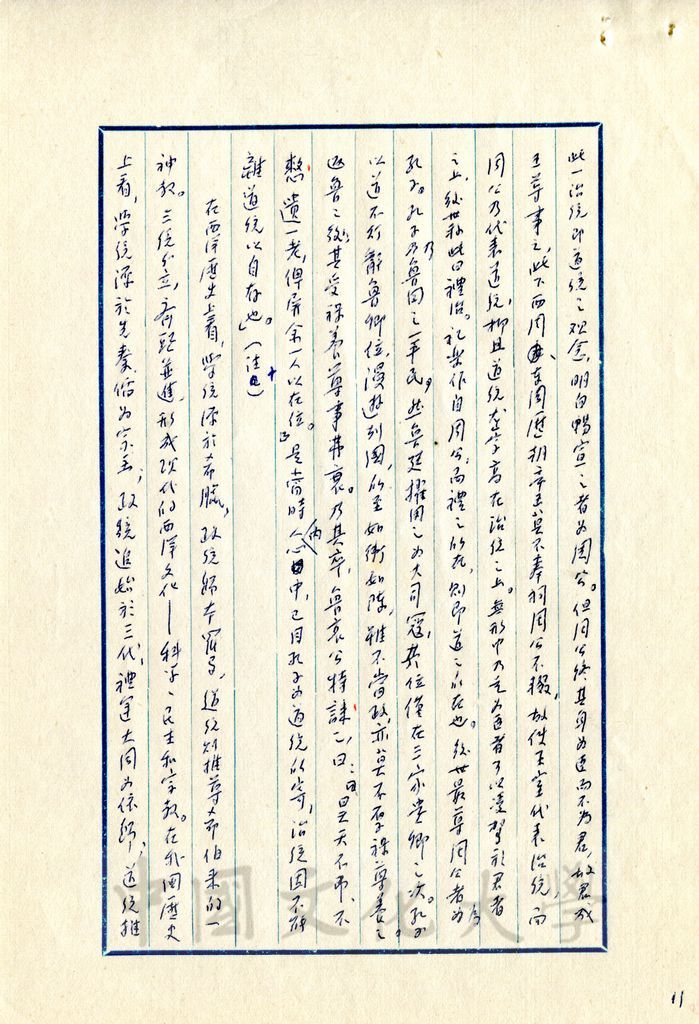 此一治統即道統之觀念，明白暢宣之者為周公。但周公終其身為臣而不為君，故君成
王尊事之，此下西周、東周歷朝帝王莫不奉祠周公不輟，故使王室代表治統，而
周公乃代表道統，抑且道統尤高在治統之上。無形中乃是為臣者可以凌駕於君者
之上，後世稱此曰禮治。禮樂作自周公，而禮之所在，則即道之所在也。後世最尊周公者為
孔子。孔子乃魯國之一平民，然魯廷擢用之為大司寇，其位僅在三家貴卿之次。孔子
以道不行辭魯卿位，漫遊列國，所至如衛如陳，雖不當政，亦莫不受祿尊養之。
返魯之後，其受祿養尊事弗衰。乃其卒，魯哀公特誄之，曰：「旻天不弔，不
憖遺一老，俾屏余一人以在位。」是當時人心內中，已目孔子為道統所寄，治統固不能
離道統以自存也。」（註十）
在西洋歷史上看，學統源於希臘，政統歸本羅馬，道統則推尊希伯來的一
神教。三統分立，齊頭並進，形成現代的西洋文化——科學、民主和宗教。在我國歷史
上看，學統源於先秦，儒為宗主；政統追始於三代，禮運大同為依歸；道統推
中國文化大學
11